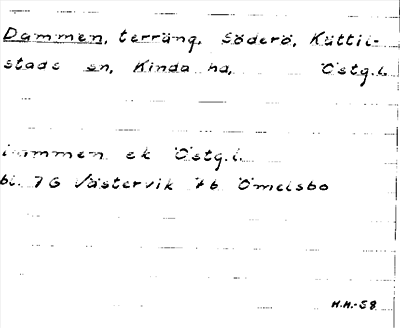 Dammen, terräng, Söderö, Kättil-
stads sn, Kinda hd, Östg.l.
Dammen ek Östg.l.
bl. 7G Västervik 7b Ömelsbo
H.H.-58